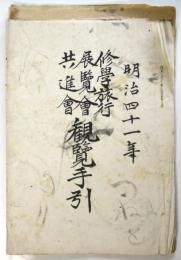 明治四十一年
修學旅行
展覽會
共進會
觀覽手引